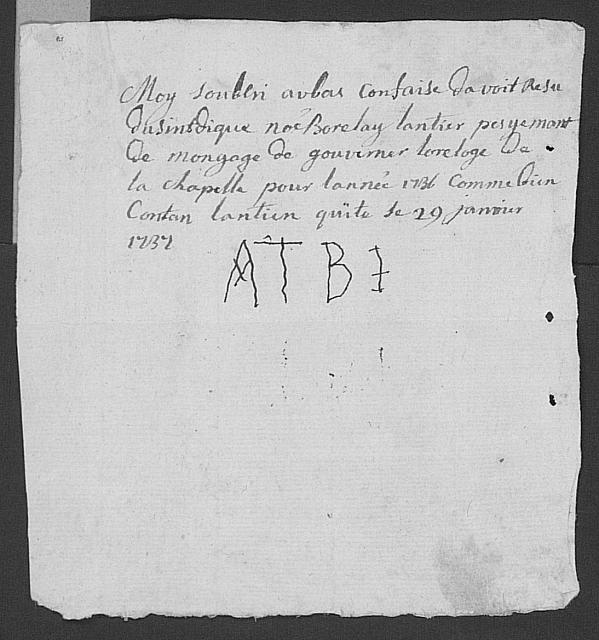 Moy soubsri aubas Confaise davoit Resu
du sintdique noe Borelay lantier pesyemant
de mongage de gouverner loreloge de
la Chapelle pour lannée 1736 Comme bien
Contan lantien quite le 29 janvier
1737
AT B J